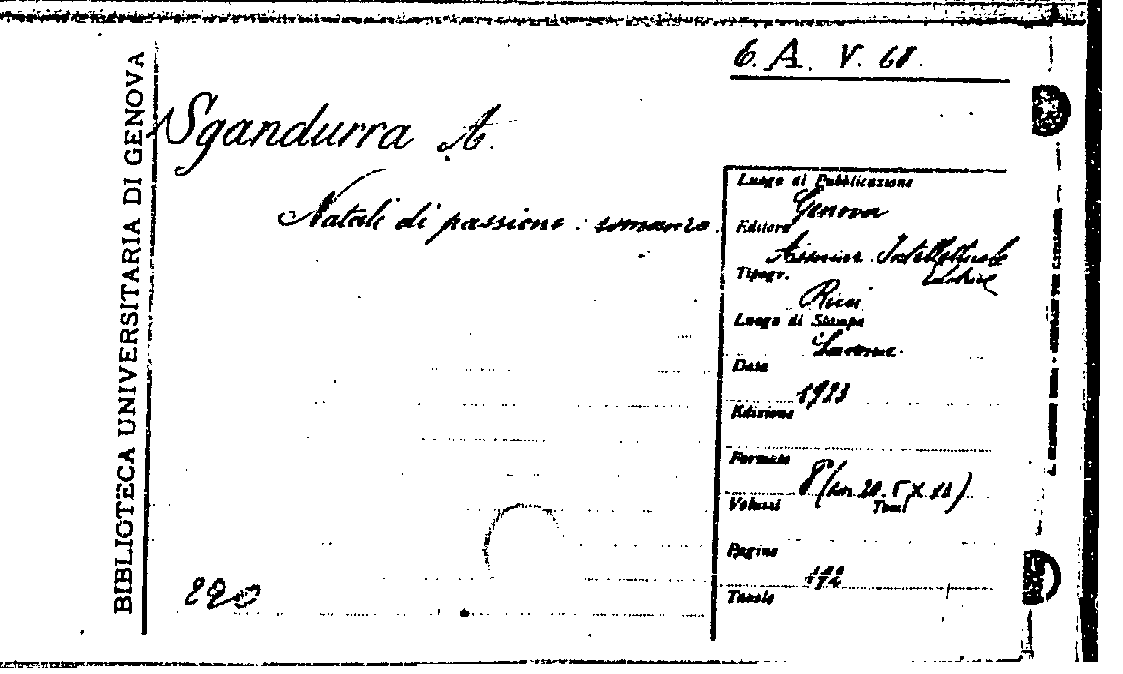 BIBLIOTECA UNIVERSITARIA DI GENOVA
6. A. V. 68.
Sgandurra A.
Natali di passione : romanzo.
Luogo di Pubblicazione
Genova
Editore
Intellettuale
Tipogr.
Ricci
Luogo di Stampa
Savona
Data
1923
Edizione
Formato
8° (cm. 20.5 X
Volumi
Tomi
Pagine
Tavole
220